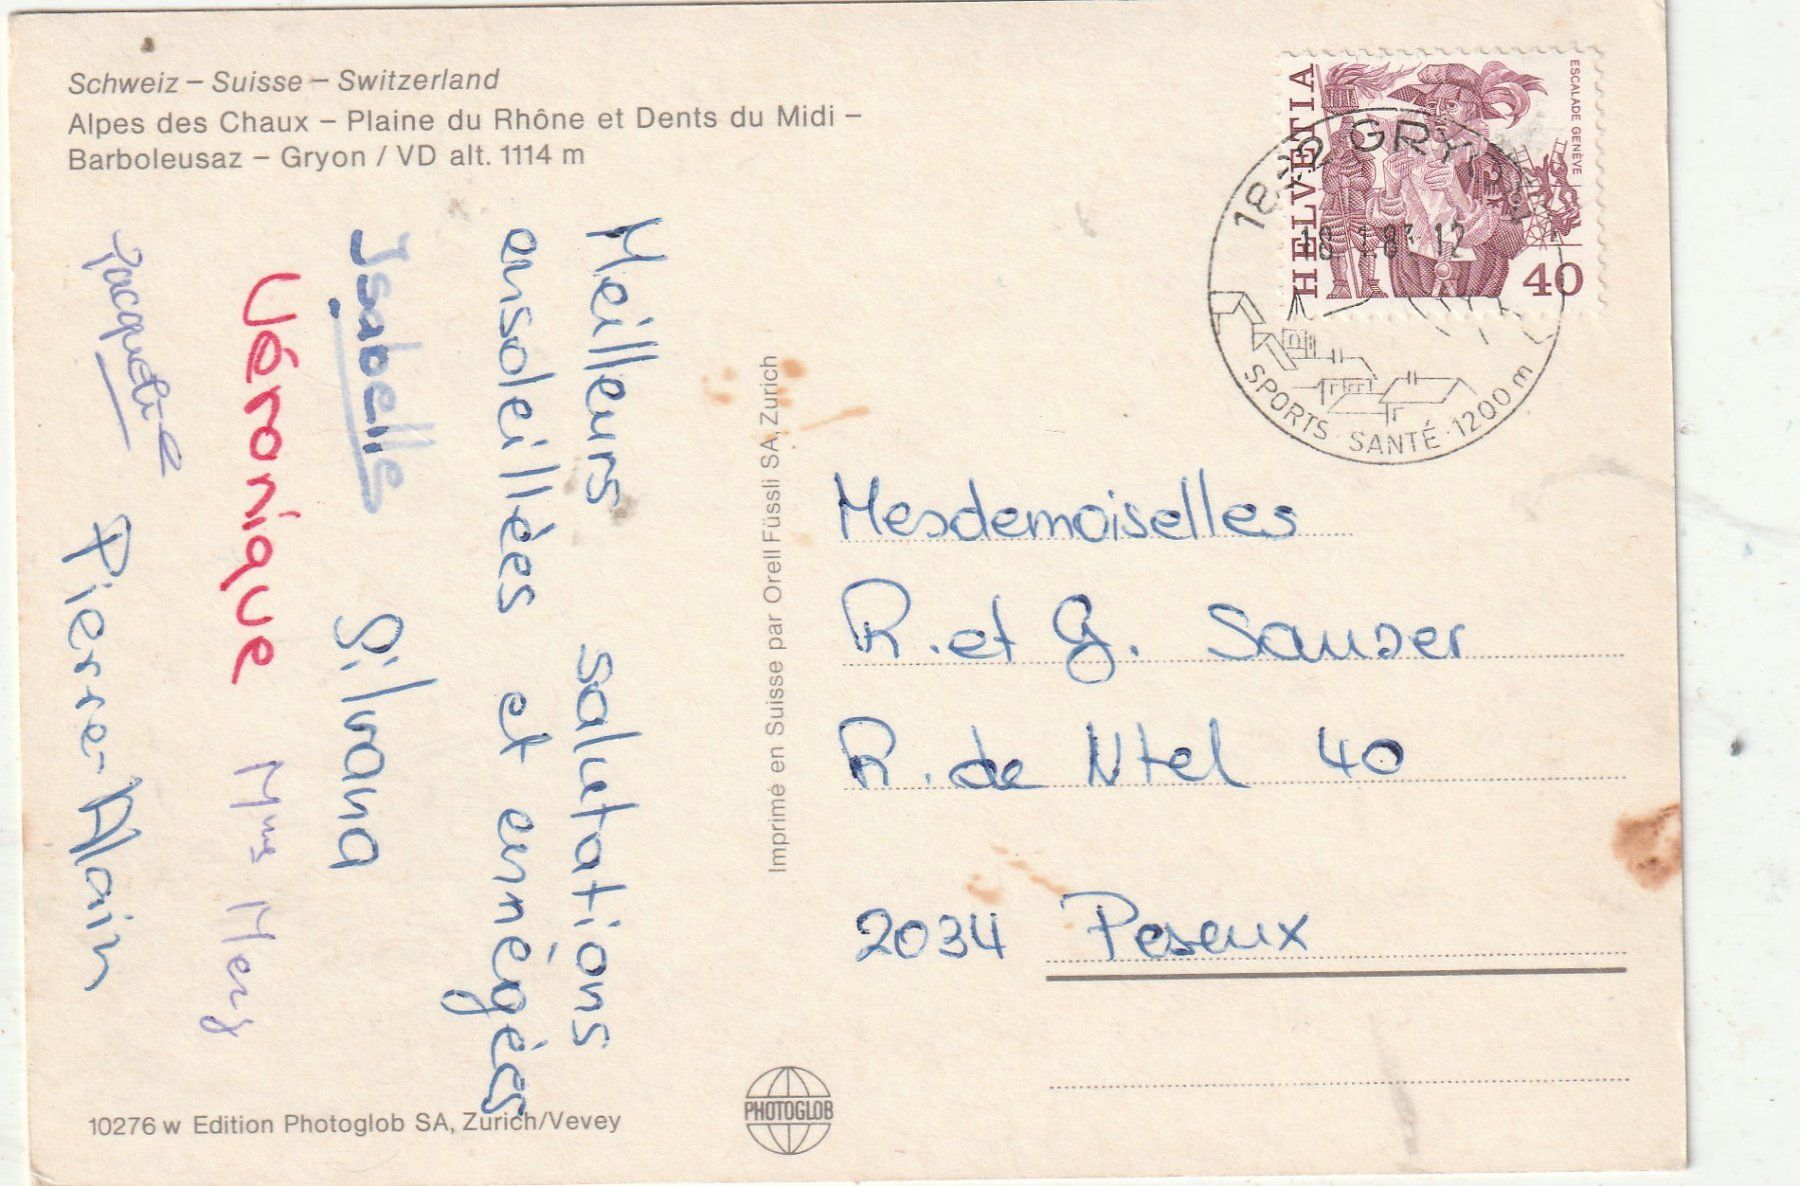 Schweiz – Suisse – Switzerland
Alpes des Chaux – Plaine du Rhône et Dents du Midi –
Barboleusaz – Gryon / VD alt. 1114 m
Meilleurs salutations
ensoleillées et ennégées
Isabelle Silvana
Véronique Mme Mery
Jacqueline Pierre-Alain
10276 w Edition Photoglob SA, Zürich/Vevey
Imprimé en Suisse par Orell Füssli SA, Zurich
PHOTOGLOB
HELVETIA
ESCALADE GENÈVE
40
1882 GRYON
18 1.83 12
SPORTS · SANTÉ · 1200 m
Mesdemoiselles
R. et G. Sauser
R. de Ntel 40
2034 Peseux